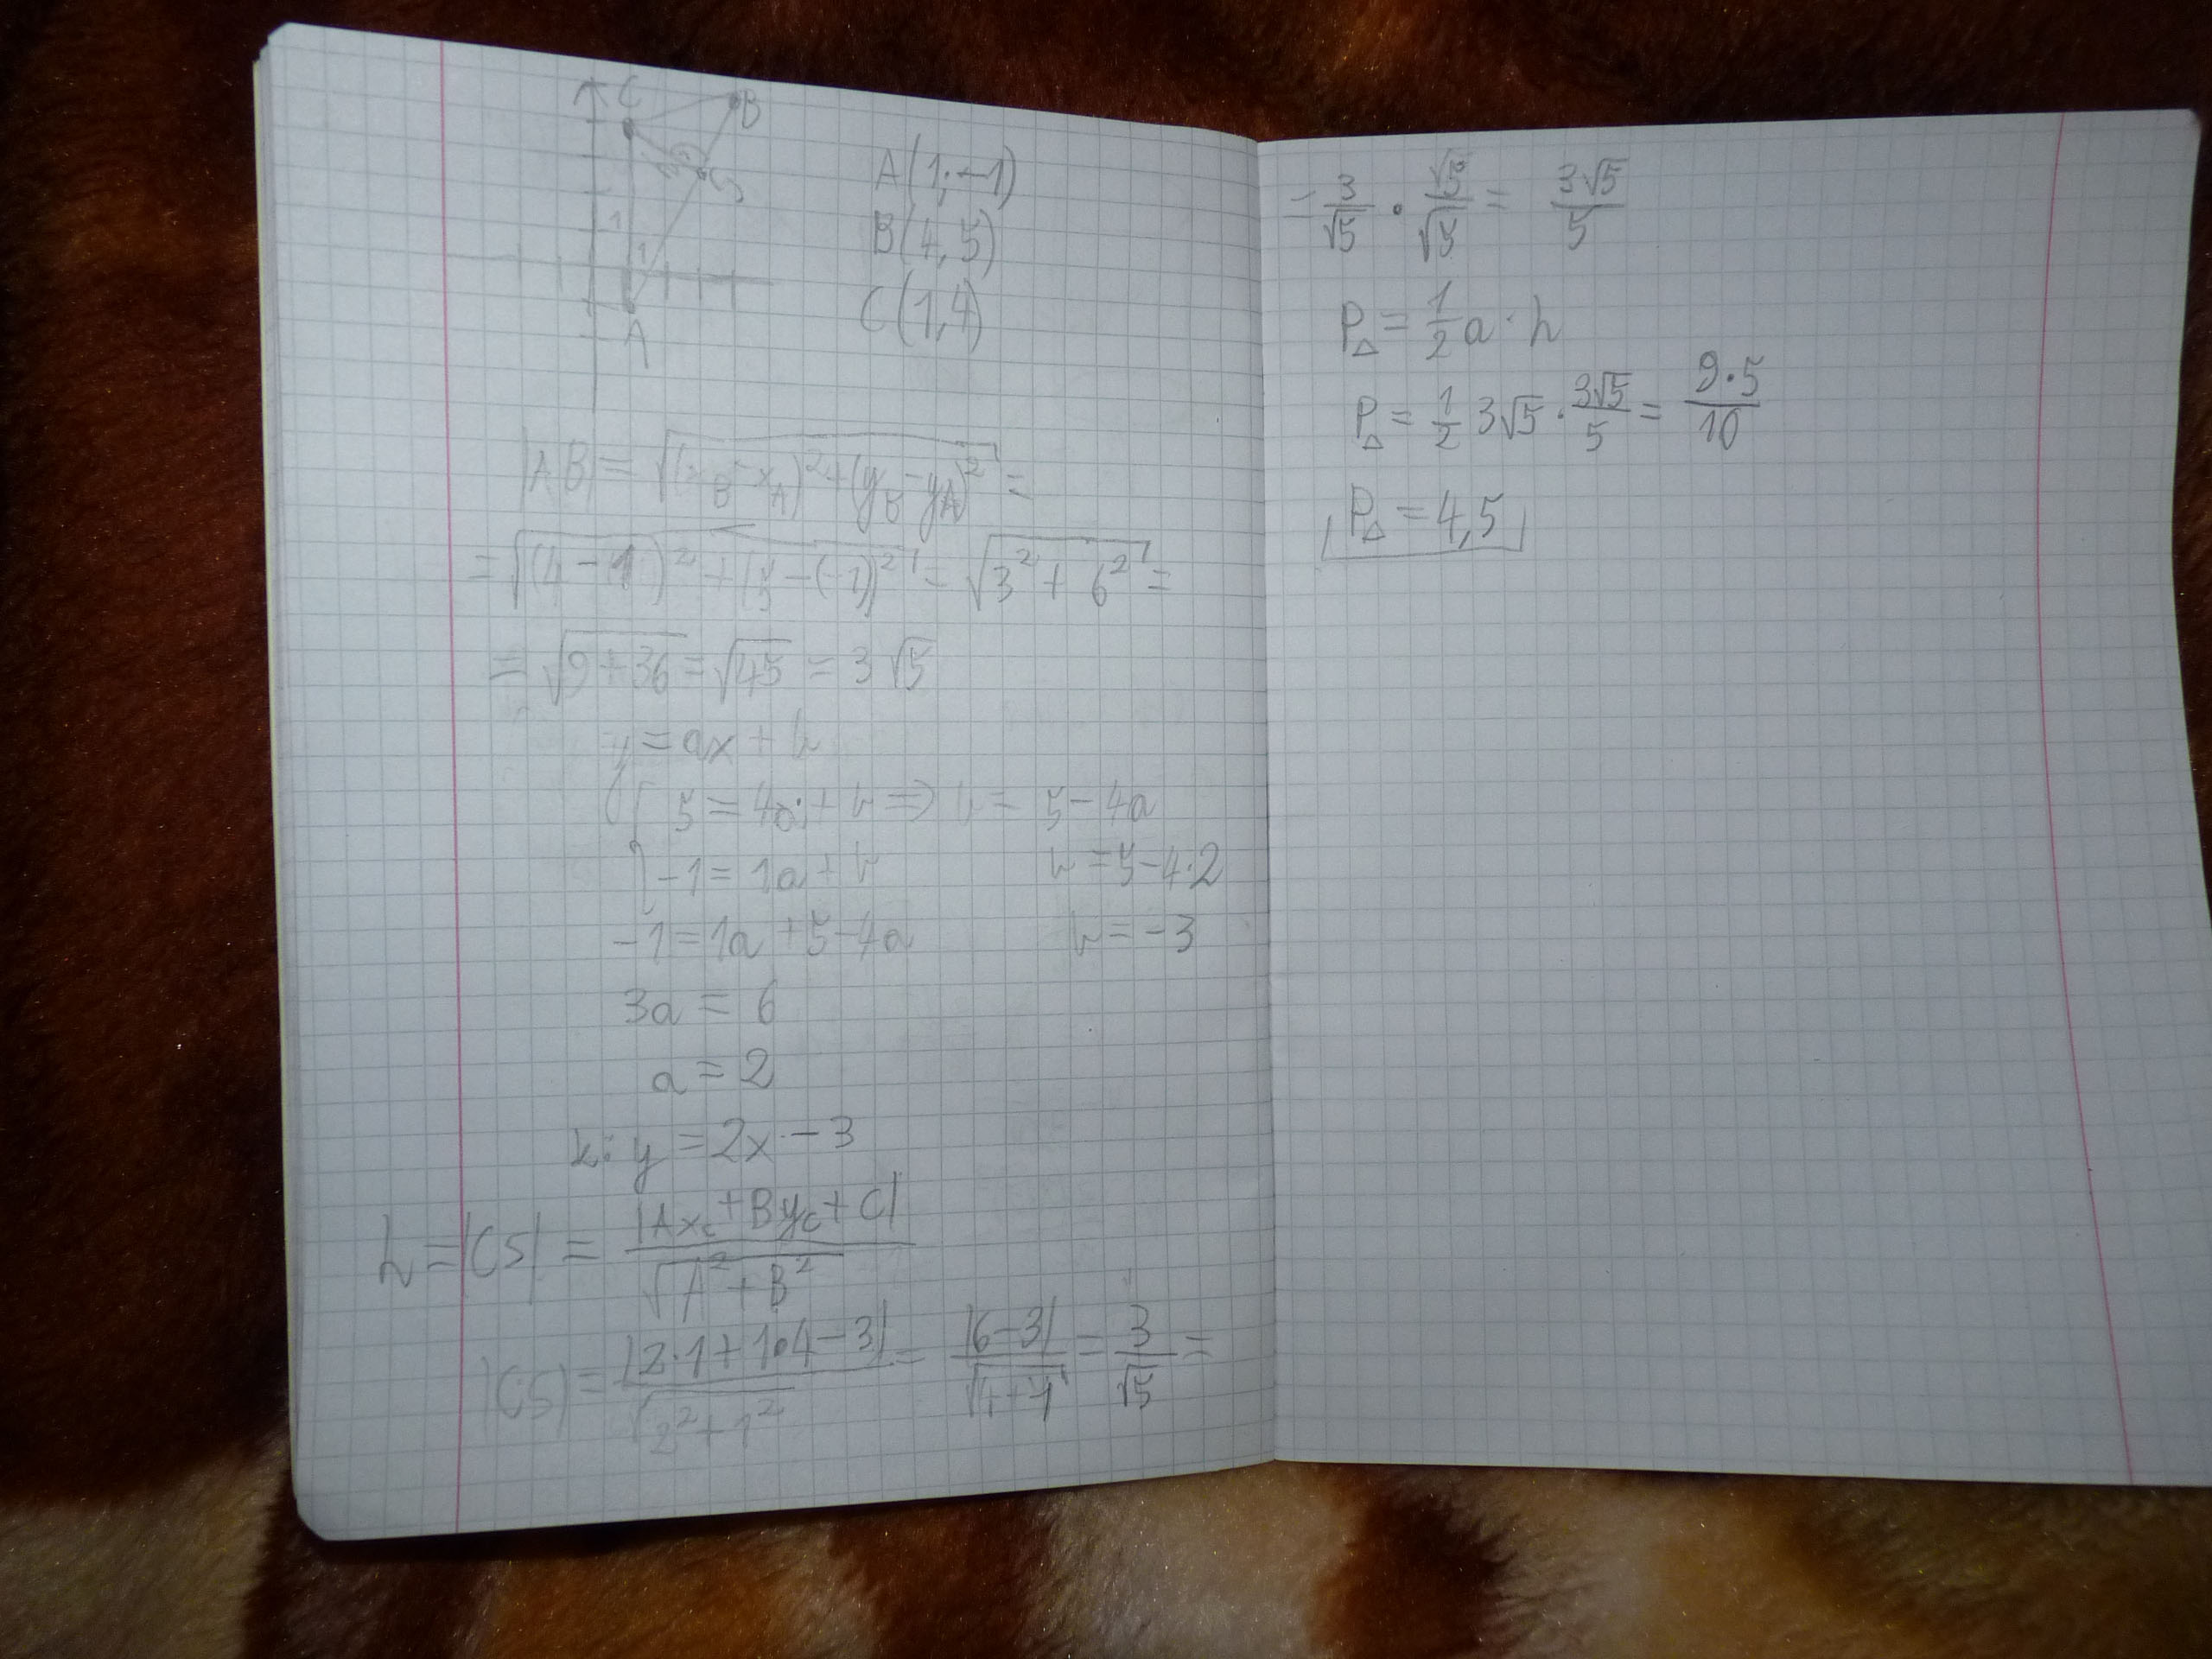 C
B
S
h
1
1
A
A(1;-1)
B(4,5)
C(1,4)
|AB| = √((x_B - x_A)² + (y_B - y_A)²) =
= √((4-(1))² + (5-(-1))²) = √(3² + 6²) =
= √(9+36) = √45 = 3√5
y = ax + b
{ 5 = 4a + b ⇒ b = 5 - 4a
-1 = 1a + b b = 5-4·2
-1 = 1a + 5 - 4a b = -3
3a = 6
a = 2
k: y = 2x - 3
h = |CS| = |Ax_c + By_c + C| / √(A² + B²)
|CS| = |2·1 + 1·4 - 3| / √(2² + 1²) = |6-3| / √(4+1) = 3/√5 =
= 3/√5 · √5/√5 = 3√5/5
P_Δ = 1/2 a · h
P_Δ = 1/2 3√5 · 3√5/5 = 9·5/10
P_Δ = 4,5